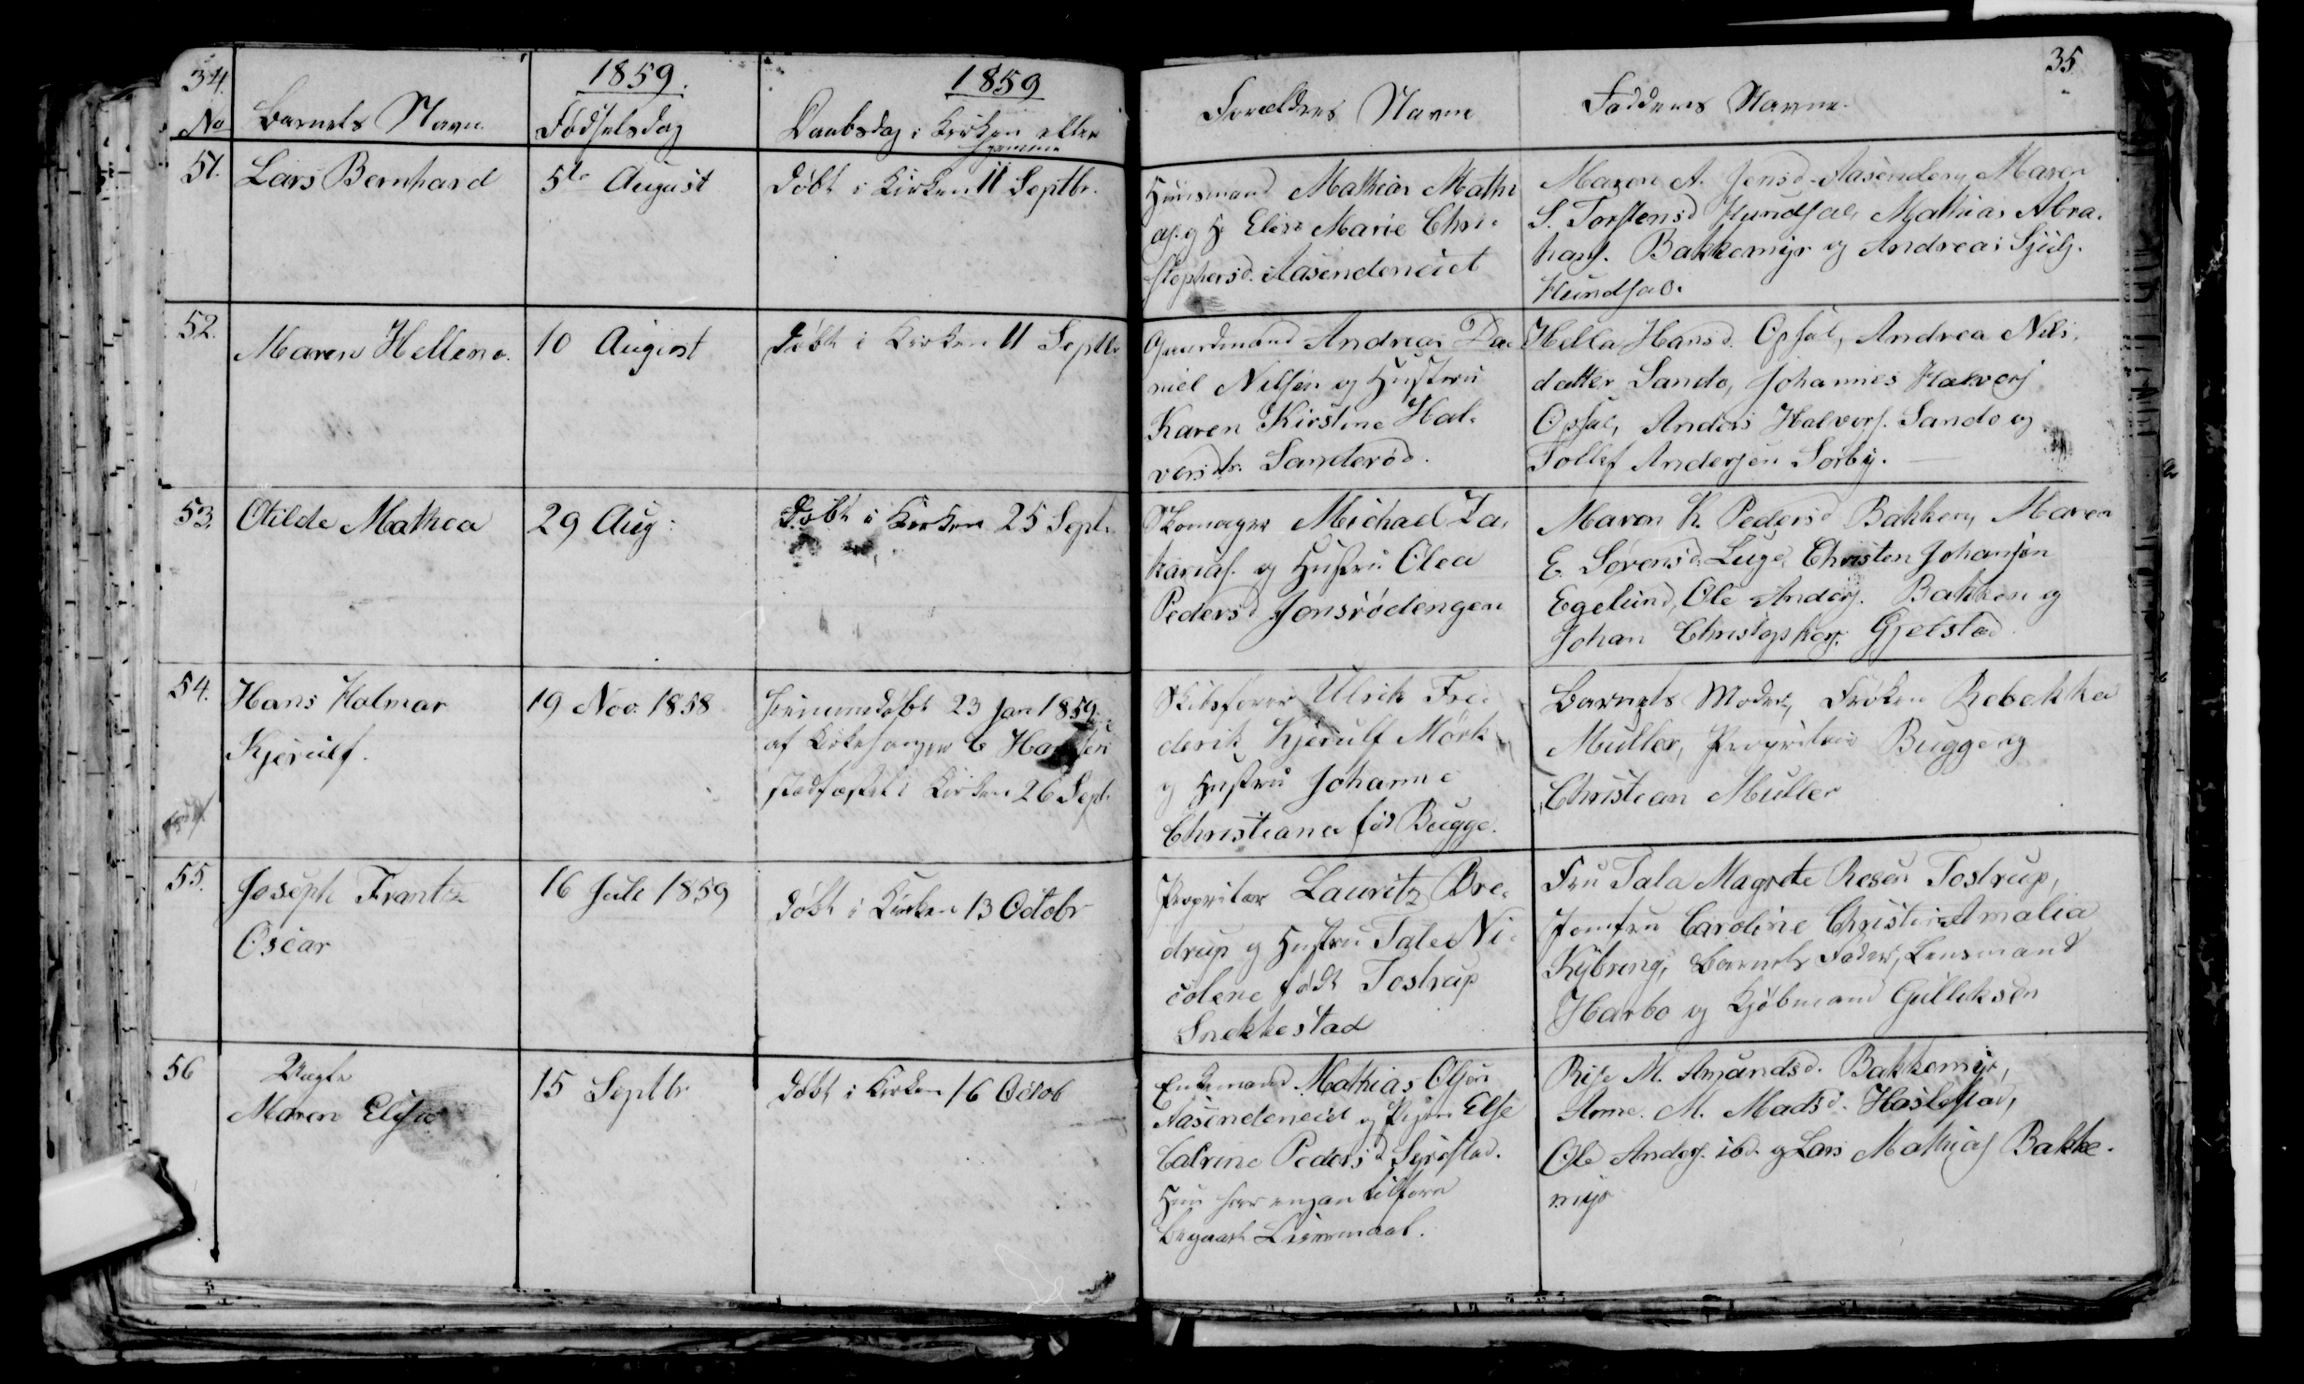 34.
1859.
1859
No
Barnets Navn
Fødselsdag
Daabsdag i Kirken eller
hjemme
51.
Lars Bernhard
5te August
døbt i Kirken 11 Septbr.
52.
Maren Hellene.
10 August
døbt i Kirken 11 Septbr
53.
Otilde Mathea
29 Aug:
døbt i Kirken 25 Sept.
54.
Hans Halmar
Kjerulf.
19 Nov. 1858
hjemmedøbt 23 Jan 1859
af Kirkesanger C
stadfæstet i Kirken 26 Sept.
55.
Joseph Frantz
Oscar
16 Juli 1859
døbt i Kirken 13 Octobr
56
Uægte
Maren Elise
15 Septbr
døbt i Kirken 16 Octob
35
Forældres Navne
Faddernes Navne.
Huusmand Mathias Mathi
as. og H. Elen Marie Chri-
stophersd. Aasendeneiet
Maren A. Jensd. Aasenden, Maren
S. Torstensd Hundsal, Mathias Abra-
hams. Bakkemyr og Andreas
Hundsal.
Gaardmand Andreas Da-
niel Nilsen og Hustru
Karen Kirstine Hal-
versdtr. Sanderød.
Hella Hansd. Opsal, Andrea Nils-
datter Sando, Johannes Halvors
Opsal, Anders Halvors. Sando og
Tollef Andersen Sørby.
Skomager Michael Za-
karias. og Hustru Olea
Pedersd Jonsrødengen
Maren K. Pedersd Bakken, Maren
E. Sørensd. Christen Johansen
Egelund, Ole Anders. Bakken og
Johan Christophers. Gjelstad
Skibsfører Ulrik Fre-
derik Kjerulf Mørk
og Hustru Johanne
Christiane fød Bugge.
Barnets Moder, Frøken Rebekka
Muller, Proprietair Bugge og
Christian Muller
Propritær Lauritz Bre-
drup og Hustru Tale Ni-
colene født Tostrup
Snekkestad
Fru Tala Magrete Rosen Tostrup,
Jomfru Caroline Christine Amalia
Kybring, Barnets Fader, Lensmand
Harbo og Kjøbmand Gulliksen
Enkemand Mathias Olsen
Aasendeneiet og Pigen Else
Catrine Pedersd
Hun har engan tilforn
begaaet Leiermaal.
M. Amundsd. Bakkemyr,
Anne. M. Madsd. Haslestad,
Ole Anders. ibd. og Lars Mathias Bakke-
myr